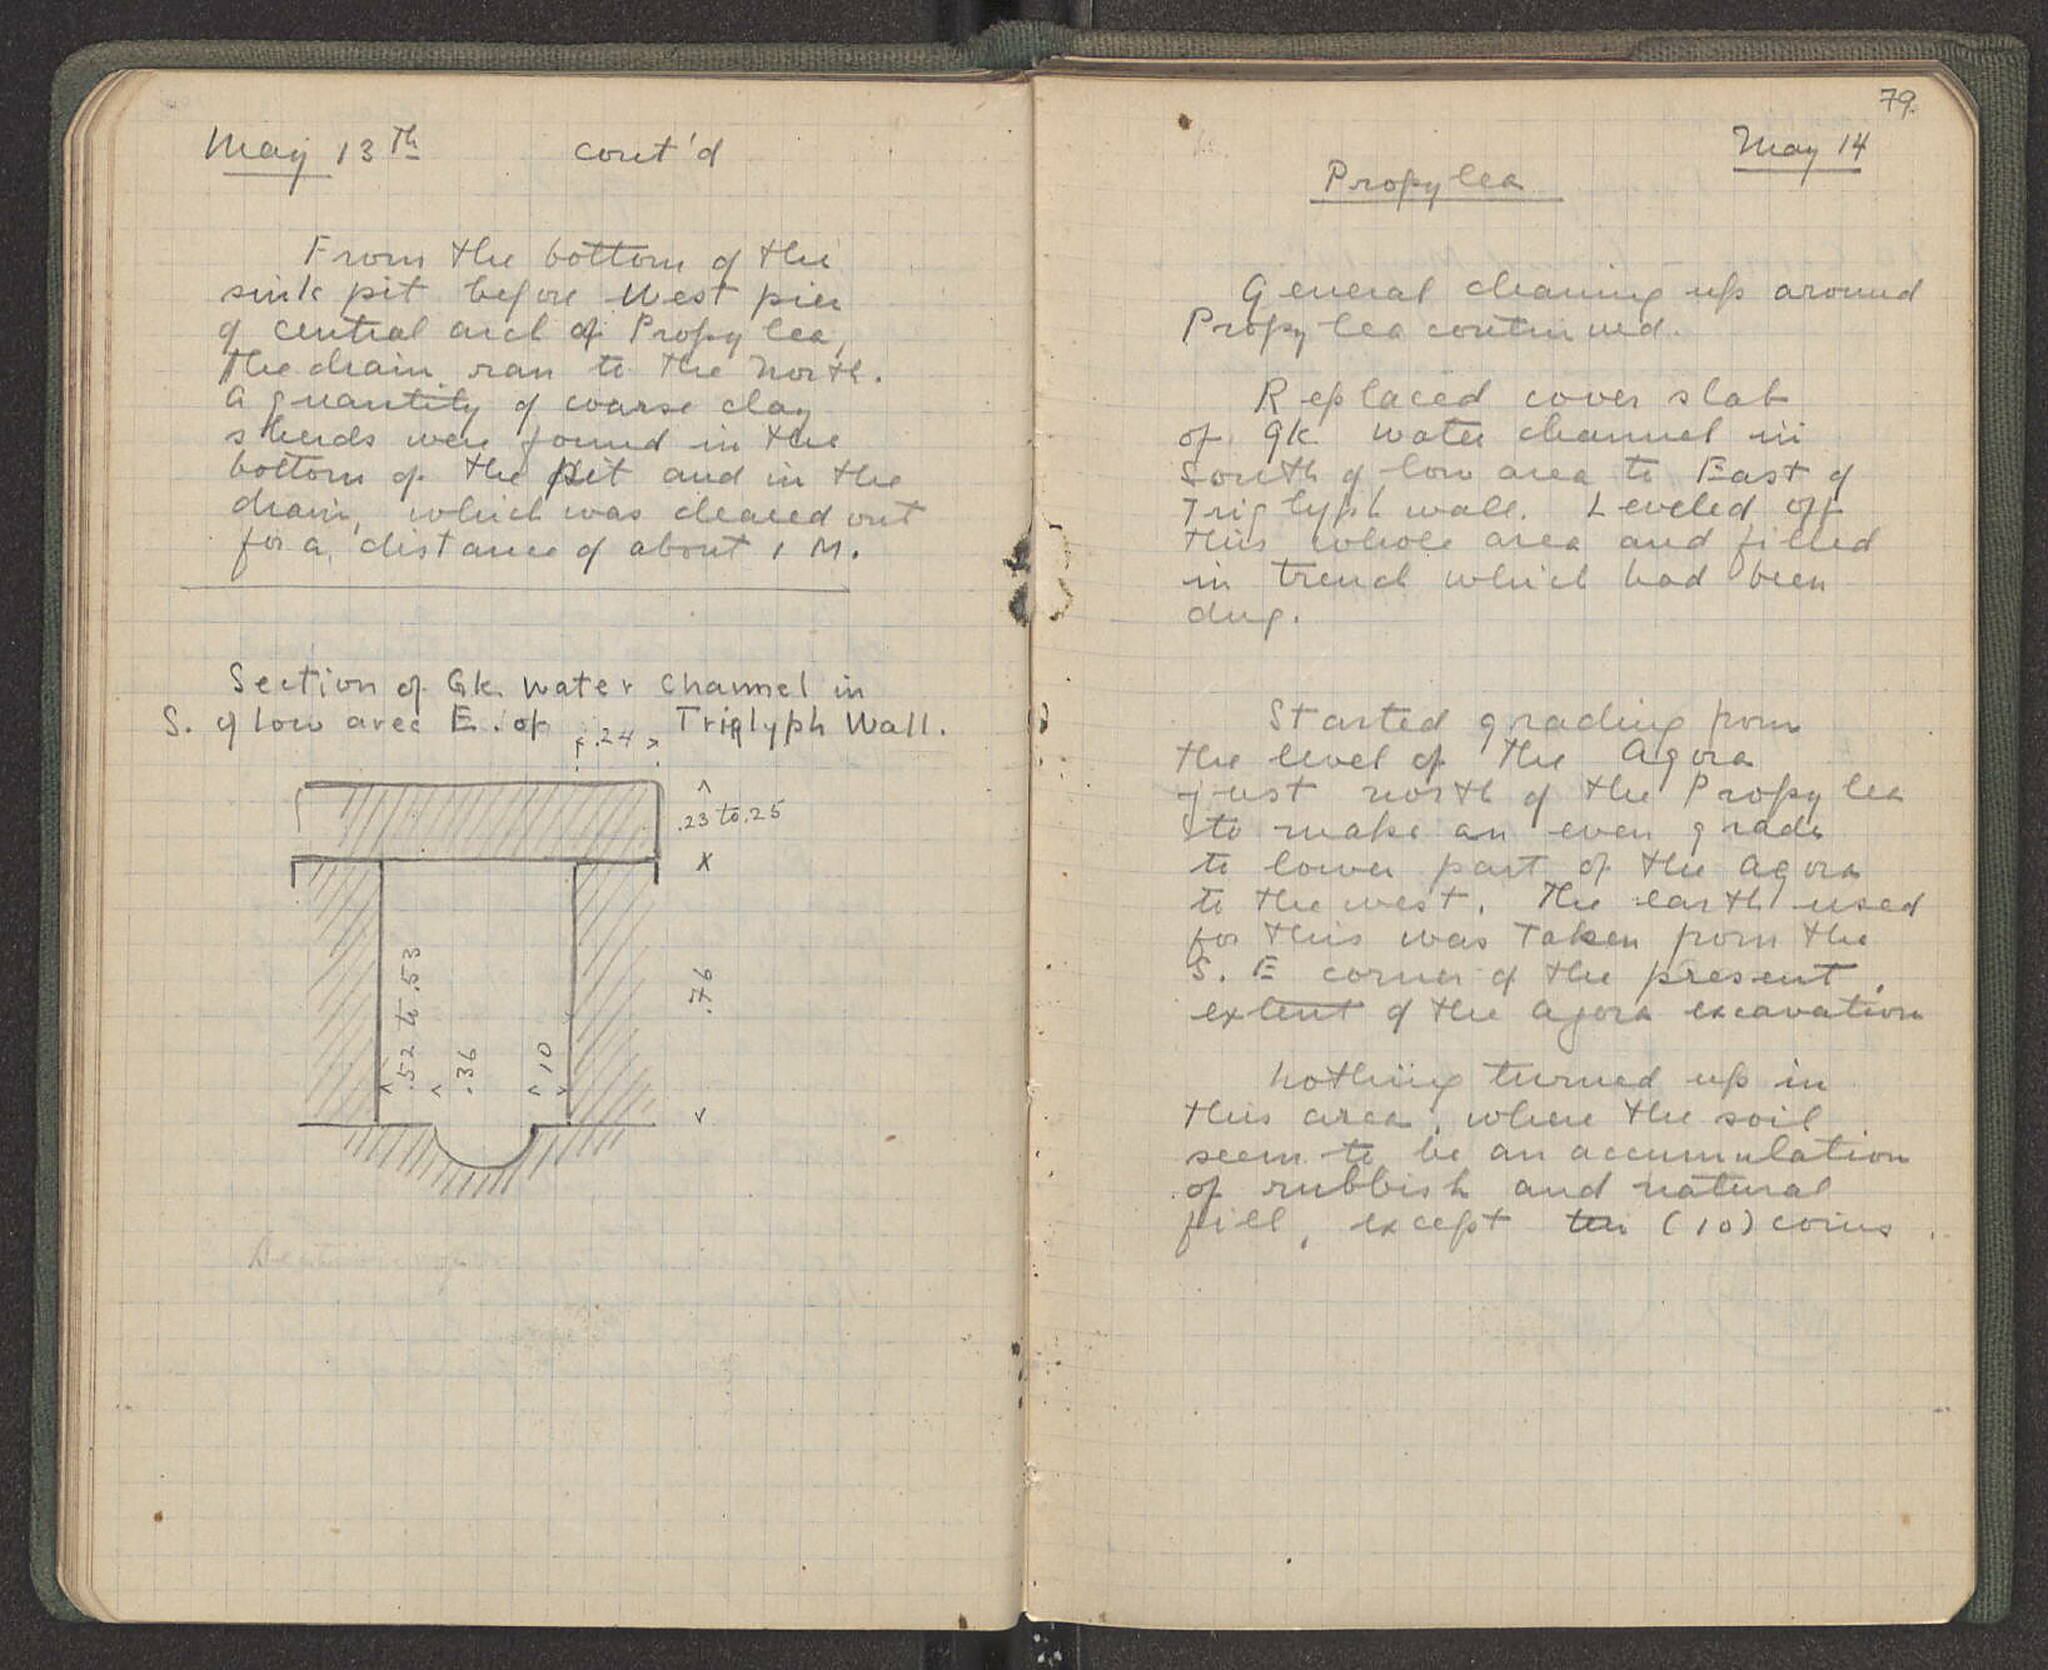 May 13th cont'd
From the bottom of the
sink pit before West pier
of central arch of Propylea,
the drain ran to the North.
A quantity of coarse clay
sherds were found in the
bottom of the pit and in the
drain, which was cleared out
for a distance of about 1 M.
Section of Gk. water channel in
S. of low area E. of Triglyph Wall.
.24
.23 to .25
.52 to .53
.36
.10
.76
79.
May 14
Propylea
General cleaning up around
Propylea continued.
Replaced cover slab
of Gk water channel in
South of low area to East of
Triglyph wall. Leveled off
this whole area and filled
in trench which had been
dug.
Started grading from
the level of the Agora
just north of the Propylea
to make an even grade
to lower part of the Agora
to the west. The earth used
for this was taken from the
S. E corner of the present
extent of the Agora excavation
Nothing turned up in
this area, where the soil
seem to be an accumulation
of rubbish and natural
fill, except ten (10) coins.